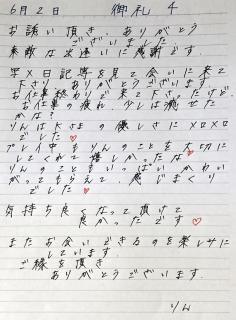 6月2日 御礼 4
お誘い頂き、ありがとう
ございました
素敵な出逢いに感謝です。
写メ日記等を見て会いに来て
下さり ありがとうございます
お仕事終わりで来てくれたけど、
お仕事の疲れ、少しは癒せた
かな?
りんはKさまの優しさにメロメロ
でした♡
プレイ中もりんのことを大切に
してくれて嬉しかったな♡
りんのこともいっぱいかわい
がってもらえて 感じまくり
でした♡
気持ち良くなって頂けて
良かったです♡
またお会いできるのを楽しみに
しています
ご縁を頂き
ありがとうございます.
りん